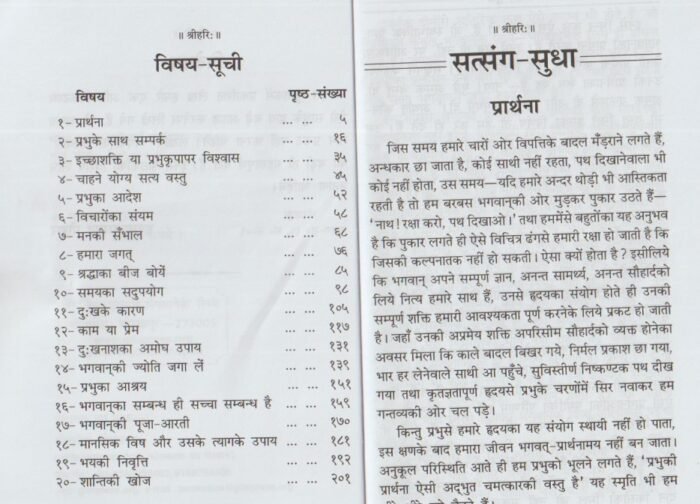 ॥ श्रीहरिः ॥
विषय-सूची
विषय पृष्ठ-संख्या
१- प्रार्थना ... ... ५
२- प्रभुके साथ सम्पर्क ... ... १६
३- इच्छाशक्ति या प्रभुकृपापर विश्वास ... ... ३५
४- चाहने योग्य सत्य वस्तु ... ... ४५
५- प्रभुका आदेश ... ... ५२
६- विचारोंका संयम ... ... ५८
७- मनकी सँभाल ... ... ६८
८- हमारा जगत् ... ... ७६
९- श्रद्धाका बीज बोयें ... ... ८५
१०- समयका सदुपयोग ... ... ९८
११- दुःखके कारण ... ... १०५
१२- काम या प्रेम ... ... ११७
१३- दुःखनाशका अमोघ उपाय ... ... १३१
१४- भगवान्‌की ज्योति जगा लें ... ... १३९
१५- प्रभुका आश्रय ... ... १५१
१६- भगवान्‌का सम्बन्ध ही सच्चा सम्बन्ध है ... ... १५९
१७- भगवान्‌की पूजा-आरती ... ... १७०
१८- मानसिक विष और उसके त्यागके उपाय ... ... १८१
१९- भयकी निवृत्ति ... ... १९२
२०- शान्तिकी खोज ... ... २०१
॥ श्रीहरिः ॥
सत्संग-सुधा
प्रार्थना
जिस समय हमारे चारों ओर विपत्तिके बादल मँड़राने लगते हैं,
अन्धकार छा जाता है, कोई साथी नहीं रहता, पथ दिखानेवाला भी
कोई नहीं होता, उस समय—यदि हमारे अन्दर थोड़ी भी आस्तिकता
रहती है तो हम बरबस भगवान्‌की ओर मुड़कर पुकार उठते हैं—
'नाथ! रक्षा करो, पथ दिखाओ।' तथा हममेंसे बहुतोंका यह अनुभव
है कि पुकार लगते ही ऐसे विचित्र ढंगसे हमारी रक्षा हो जाती है कि
जिसकी कल्पनातक नहीं हो सकती। ऐसा क्यों होता है? इसीलिये
कि भगवान् अपने सम्पूर्ण ज्ञान, अनन्त सामर्थ्य, अनन्त सौहार्दको
लिये नित्य हमारे साथ हैं, उनसे हृदयका संयोग होते ही उनकी
सम्पूर्ण शक्ति हमारी आवश्यकता पूर्ण करनेके लिये प्रकट हो जाती
है। जहाँ उनकी अप्रमेय शक्ति अपरिसीम सौहार्दको व्यक्त होनेका
अवसर मिला कि काले बादल बिखर गये, निर्मल प्रकाश छा गया,
भार हर लेनेवाला साथी आ पहुँचे, सुविस्तीर्ण निष्कण्टक पथ दीख
गया तथा कृतज्ञतापूर्ण हृदयसे प्रभुके चरणोंमें सिर नवाकर हम
गन्तव्यकी ओर चल पड़े।
किन्तु प्रभुसे हमारे हृदयका यह संयोग स्थायी नहीं हो पाता,
इस क्षणके बाद हमारा जीवन भगवत्-प्रार्थनामय नहीं बन जाता।
अनुकूल परिस्थिति आते ही हम प्रभुको भूलने लगते हैं, 'प्रभुकी
प्रार्थना ऐसी अद्भुत चमत्कारकी वस्तु है' यह स्मृति भी हम